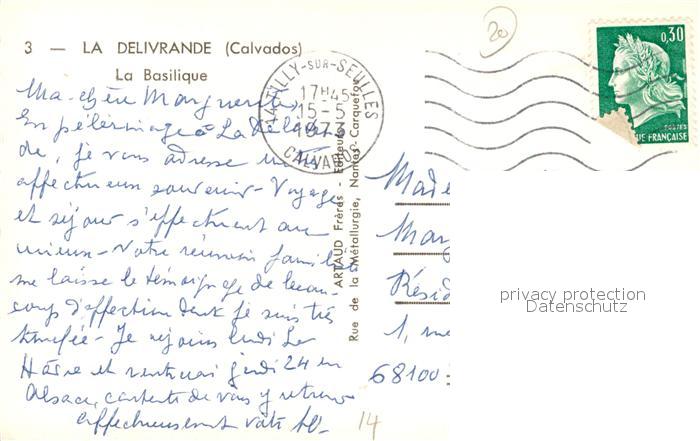 3 — LA DELIVRANDE (Calvados)
La Basilique
20
0,30
POSTES
UE FRANÇAISE
MATHILLY-SUR-SEULLES
17H45
15-5
CALVADOS
Ma chère Marguerite
En pèlerinage à La Délivran
de, je vous adresse un très
affectueux souvenir - Voyage
et séjour s'effectuent au
mieux - Notre réunion familiale
me laisse le témoignage de beau-
coup d'affection dont je suis très
touchée - Je rejoins lundi Le
Hâvre et rentrerai jeudi 24 en
Alsace, contente de vous y retrouver
affectueusement votre
14
ARTAUD Frères - Editeurs
Rue de la Métallurgie, Nantes-Carquefou
Made
Mar
Résid
1,
68100
privacy protection
Datenschutz